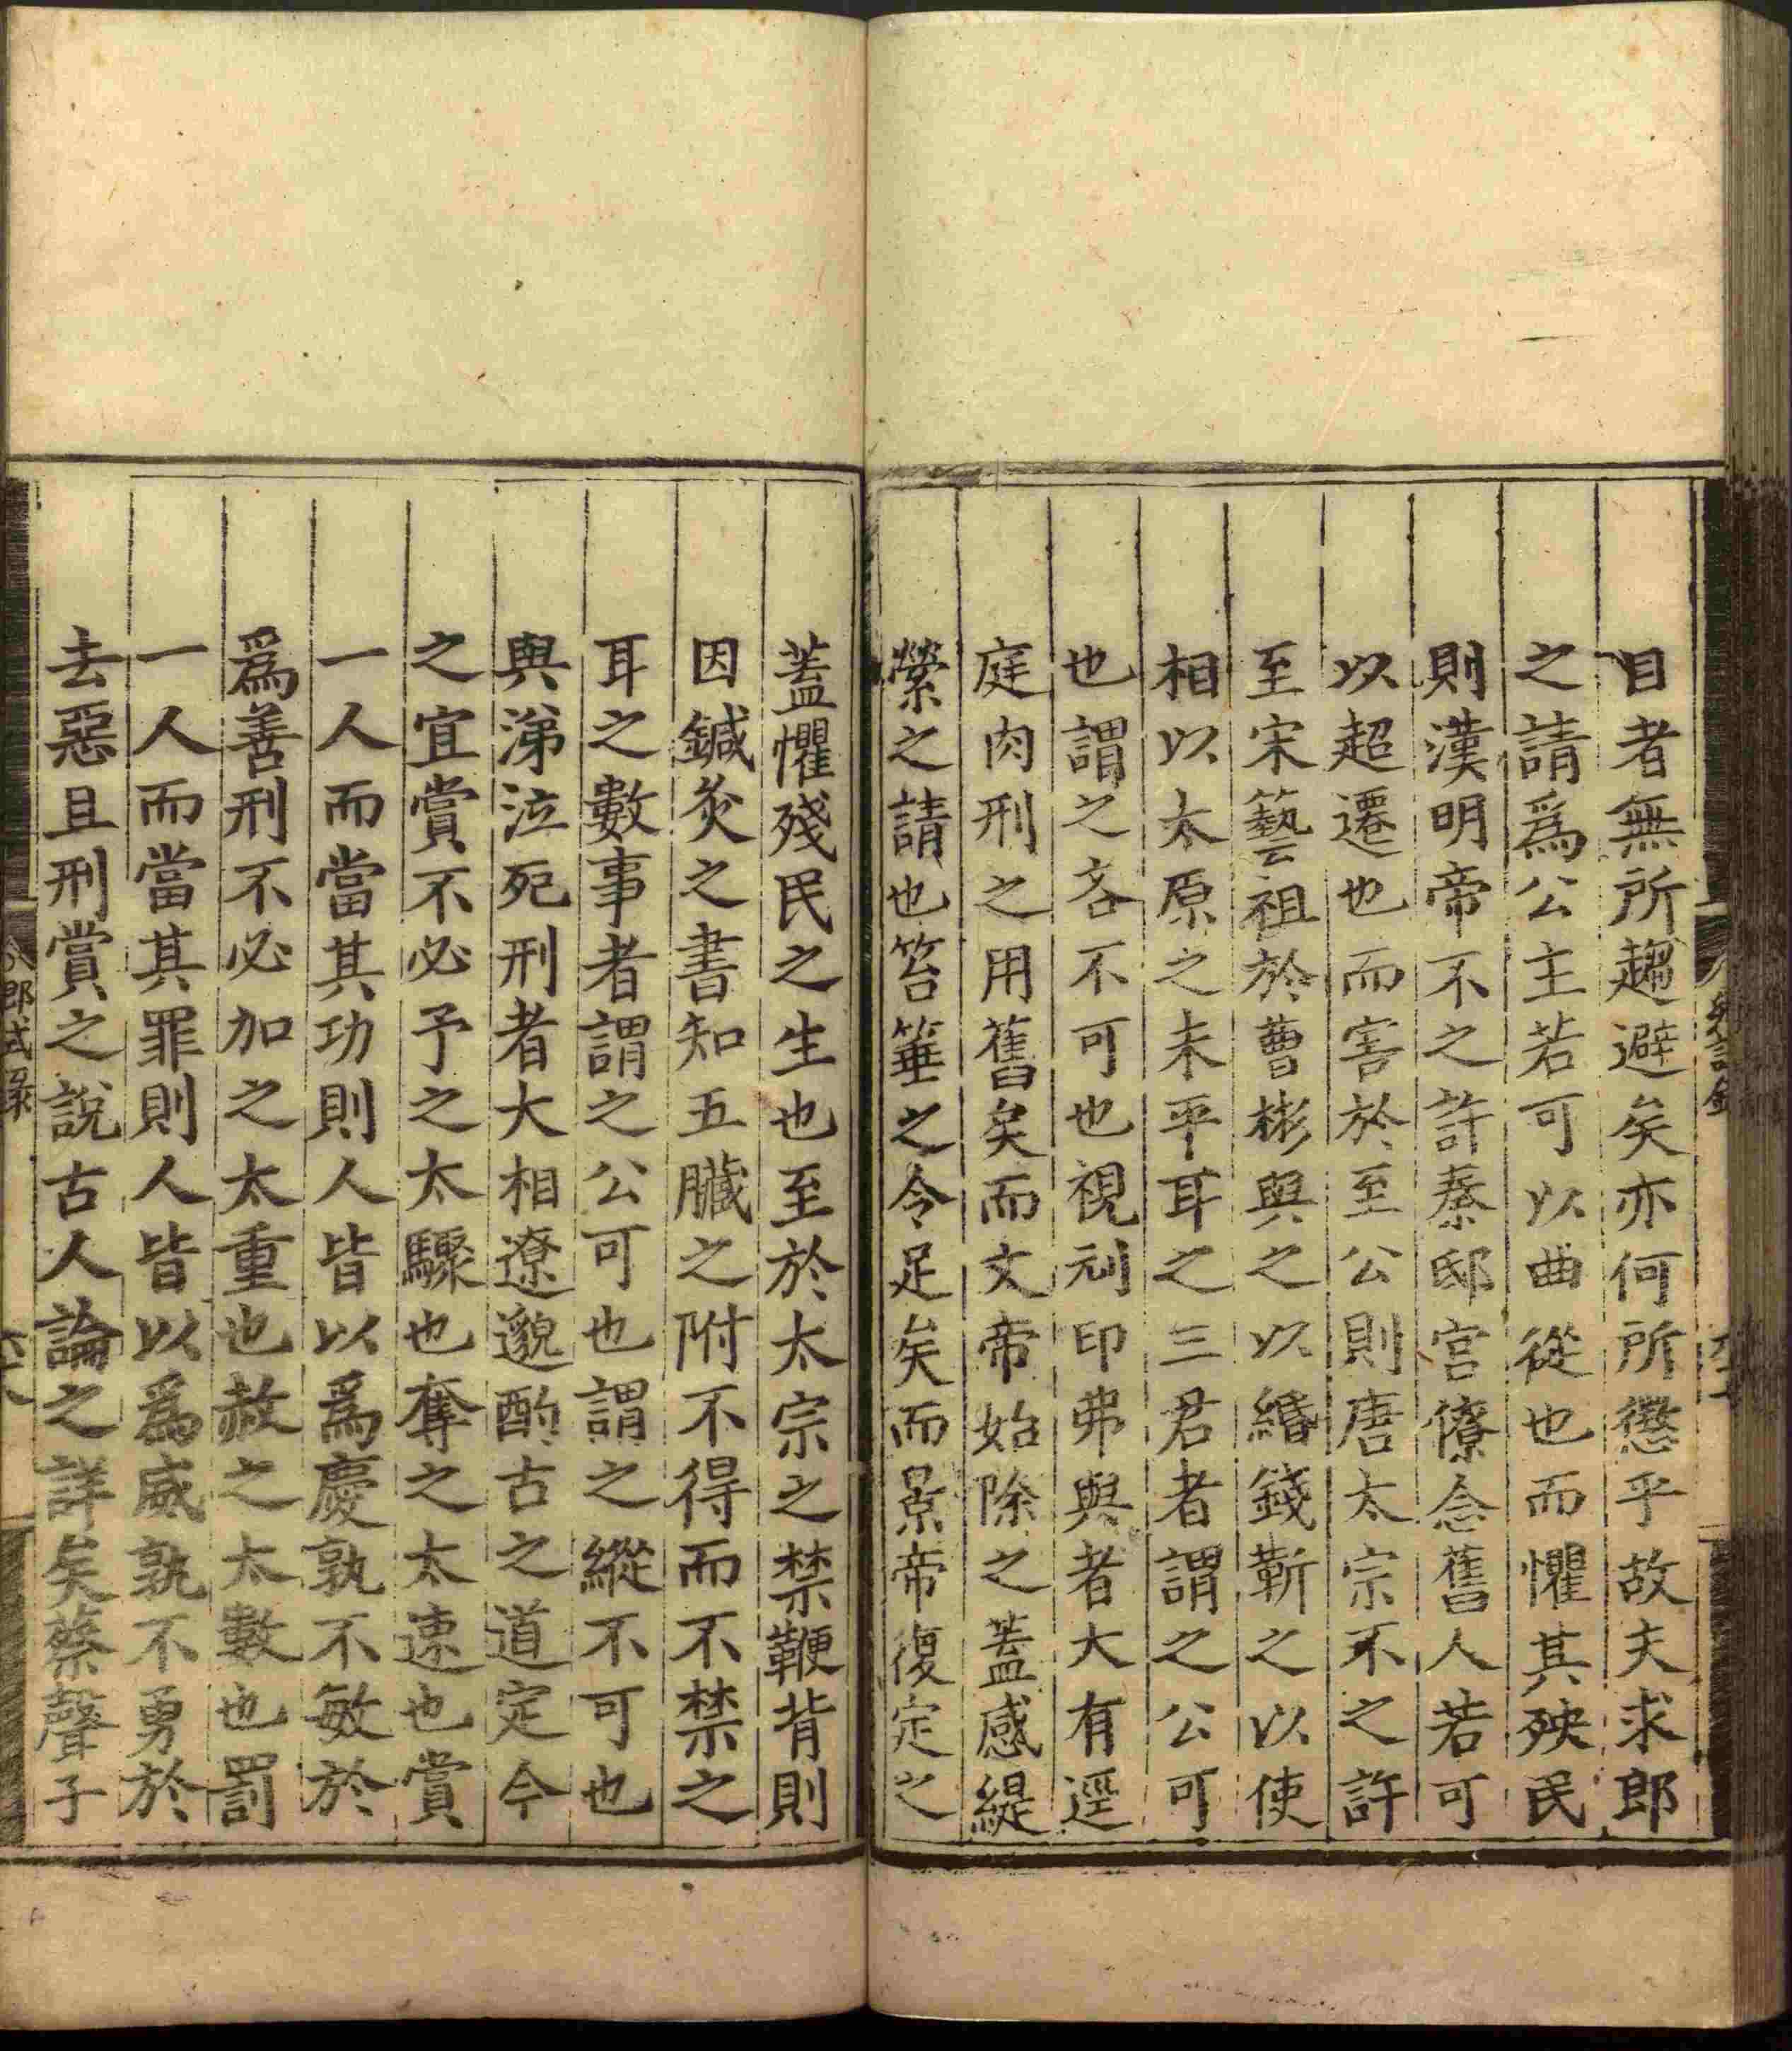 目者無所趨避矣亦何所懲乎故夫求郎
之請爲公主若可以曲從也而懼其殃民
則漢明帝不之許秦邸宫僚念舊人若可
以超遷也而害於至公則唐太宗不之許
至宋藝祖於曹彬與之以緡錢靳之以使
相以太原之未平耳之三君者謂之公可
也謂之吝不可也視刓印弗與者大有逕
庭肉刑之用舊矣而文帝始除之蓋感緹
縈之請也笞箠之令足矣而景帝復定之
蓋懼殘民之生也至於太宗之禁鞭背則
因鍼灸之書知五臟之附不得而不禁之
耳之數事者謂之公可也謂之縱不可也
與涕泣死刑者大相遼邈酌古之道定今
之宜賞不必予之太驟也奪之太速也賞
一人而當其功則人皆以爲慶孰不敏於
爲善刑不必加之太重也赦之太數也罰
一人而當其罪則人皆以爲威孰不勇於
去惡且刑賞之說古人論之詳矣蔡聲子